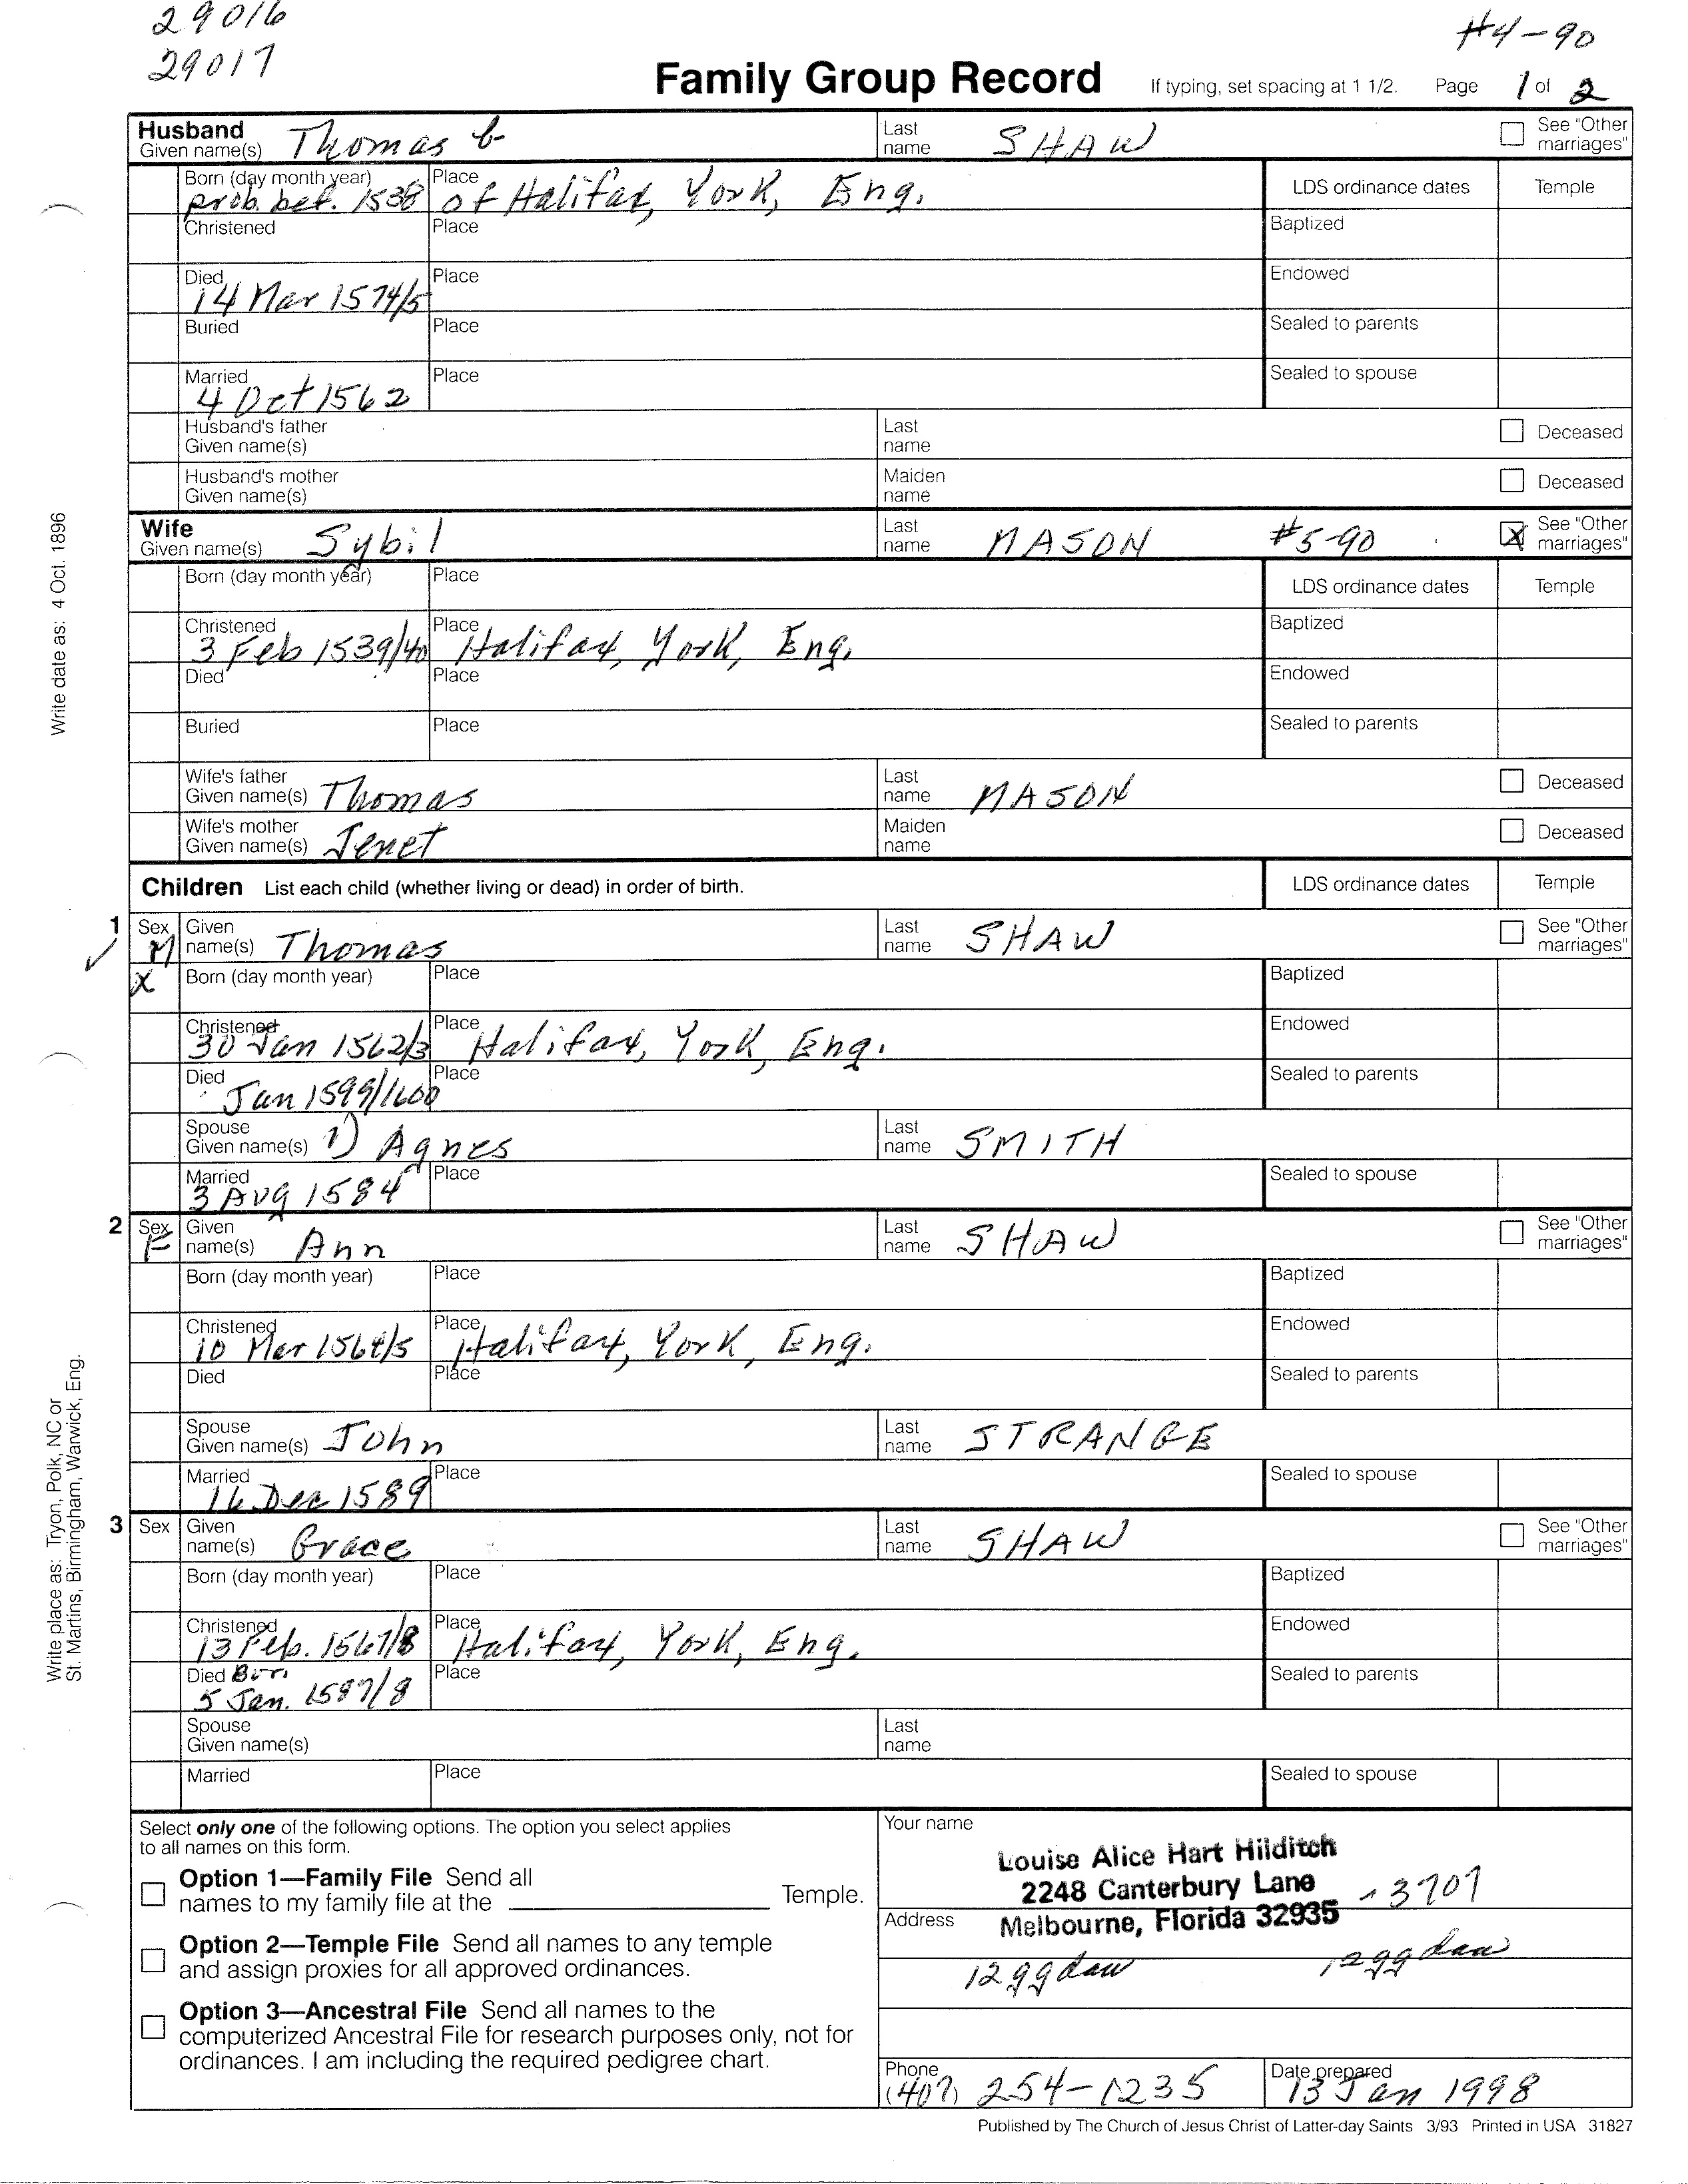 29016
29017
#4-90
Family Group Record If typing, set spacing at 1 1/2. Page 1 of 2
Husband
Given name(s) Thomas
Last name SHAW
See "Other marriages"
Born (day month year) prob. bef. 1538 Place of Halifax, York, Eng.
LDS ordinance dates Temple
Christened Place Baptized
Died 14 Mar 1574/5 Place Endowed
Buried Place Sealed to parents
Married 4 Oct 1562 Place Sealed to spouse
Husband's father Given name(s) Last name Deceased
Husband's mother Given name(s) Maiden name Deceased
Wife
Given name(s) Sybil Last name MASON #5-90 X See "Other marriages"
Born (day month year) Place LDS ordinance dates Temple
Christened 3 Feb 1539/40 Place Halifax, York, Eng. Baptized
Died Place Endowed
Buried Place Sealed to parents
Wife's father Given name(s) Thomas Last name MASON Deceased
Wife's mother Given name(s) Jenet Maiden name Deceased
Children List each child (whether living or dead) in order of birth. LDS ordinance dates Temple
1 Sex M Given name(s) Thomas Last name SHAW See "Other marriages"
X Born (day month year) Place Baptized
Christened 30 Jan 1562/3 Place Halifax, York, Eng. Endowed
Died Jan 1599/1600 Place Sealed to parents
Spouse Given name(s) 1) Agnes Last name SMITH
Married 3 AUG 1584 Place Sealed to spouse
2 Sex F Given name(s) Ann Last name SHAW See "Other marriages"
Born (day month year) Place Baptized
Christened 10 Mar 1564/5 Place Halifax, York, Eng. Endowed
Died Place Sealed to parents
Spouse Given name(s) John Last name STRANGE
Married 16 Dec 1589 Place Sealed to spouse
3 Sex Given name(s) Grace Last name SHAW See "Other marriages"
Born (day month year) Place Baptized
Christened 13 Feb. 1567/8 Place Halifax, York, Eng. Endowed
Died Bur. 5 Jan. 1587/8 Place Sealed to parents
Spouse Given name(s) Last name
Married Place Sealed to spouse
Select only one of the following options. The option you select applies
to all names on this form.
Option 1—Family File Send all
names to my family file at the Temple.
Option 2—Temple File Send all names to any temple
and assign proxies for all approved ordinances.
Option 3—Ancestral File Send all names to the
computerized Ancestral File for research purposes only, not for
ordinances. I am including the required pedigree chart.
Your name
Louise Alice Hart Hilditch
2248 Canterbury Lane
Address Melbourne, Florida 32935 -3707
12 gg dau 12 gg dau
Phone (407) 254-1235 Date prepared 13 Jan 1998
Published by The Church of Jesus Christ of Latter-day Saints 3/93 Printed in USA 31827
Write date as: 4 Oct. 1896
Write place as: Tryon, Polk, NC or
St. Martins, Birmingham, Warwick, Eng.